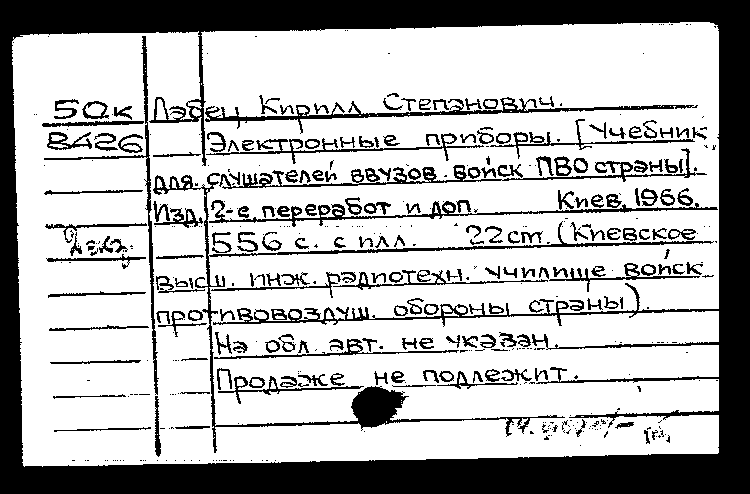 50к Лабец, Кирилл Степанович.
8426 Электронные приборы. [Учебник
для слушателей ввузов войск ПВО страны].
Изд. 2-е, переработ и доп. Киев, 1966.
2 экз. 556 с. с илл. 22 см. (Киевское
высш. инж. радиотехн. училище войск
противовоздуш. обороны страны).
На обл. авт. не указан.
Продаже не подлежит.